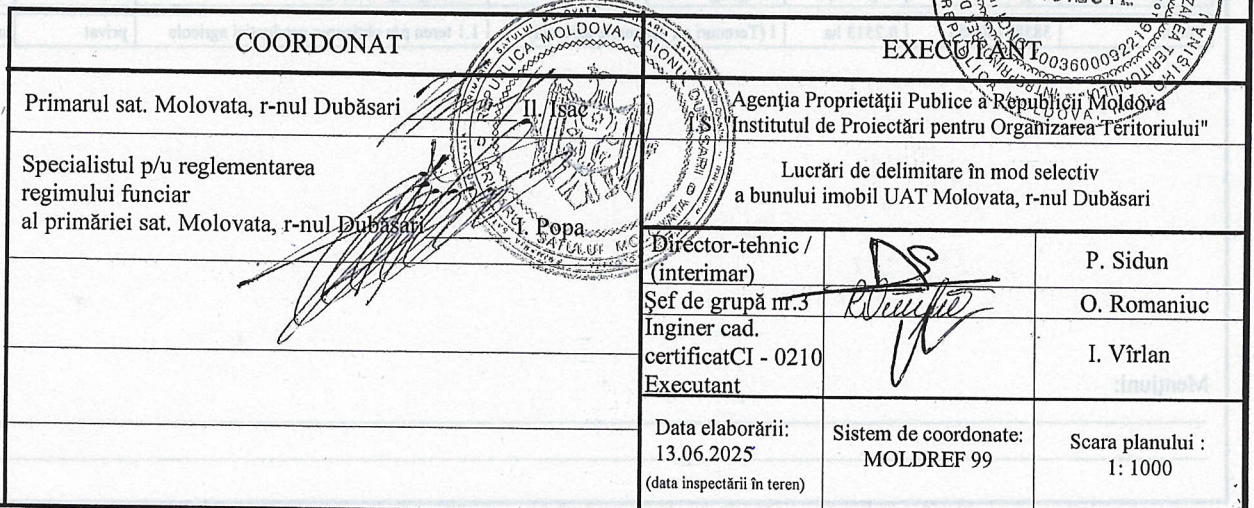 COORDONAT
Primarul sat. Molovata, r-nul Dubăsari Il. Isac
Specialistul p/u reglementarea
regimului funciar
al primăriei sat. Molovata, r-nul Dubăsari I. Popa
EXECUTANT
Agenţia Proprietăţii Publice a Republicii Moldova
Î.S. "Institutul de Proiectări pentru Organizarea Teritoriului"
Lucrări de delimitare în mod selectiv
a bunului imobil UAT Molovata, r-nul Dubăsari
Director-tehnic /
(interimar)
P. Sidun
Şef de grupă nr.3
O. Romaniuc
Inginer cad.
certificatCI - 0210
Executant
I. Vîrlan
Data elaborării:
13.06.2025
(data inspectării în teren)
Sistem de coordonate:
MOLDREF 99
Scara planului :
1: 1000
REPUBLICA MOLDOVA, RAIONUL DUBĂSARI
PRIMARUL SATULUI
Menţiuni: